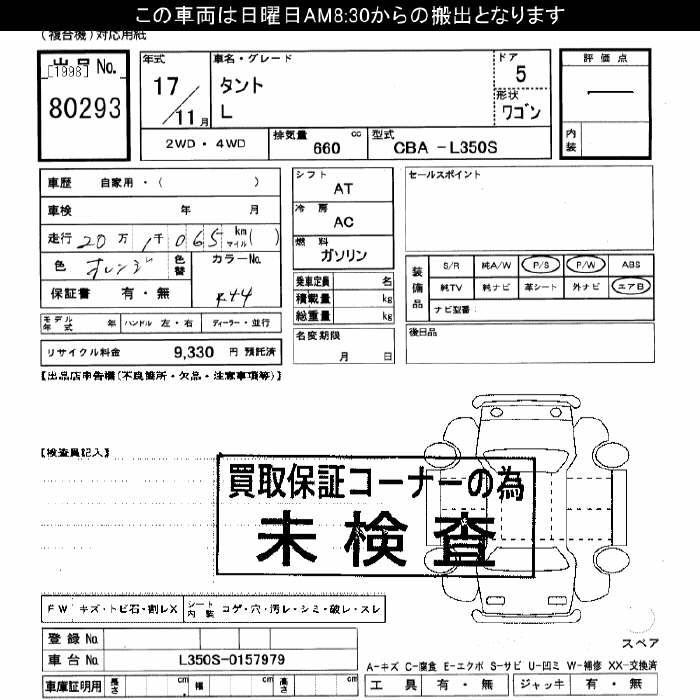 この車両は日曜日AM8:30からの搬出となります
(複合機)対応用紙
出品 No.
[1998]
80293
年式
17/11月
車名・グレード
タント
L
ドア
5
形状
ワゴン
評価点
―
内装
2WD・4WD
排気量 cc
660
型式
CBA -L350S
車歴 自家用・( )
車検 年 月
走行 20万 1千065 km マイル( )
色 オレンジ 色替 カラーNo.
保証書 有・無 R44
モデル年式 年 ハンドル 左・右 ディーラー・並行
リサイクル料金 9,330 円 預託済
シフト
AT
冷房
AC
燃料
ガソリン
乗車定員 名
積載量 kg
総重量 kg
名変期限
月 日
セールスポイント
装備品
S/R 純A/W P/S P/W ABS
純TV 純ナビ 革シート 外ナビ エアB
ナビ型番:
後日品
【出品店申告欄(不良箇所・欠品・注意事項等)】
【検査員記入】
買取保証コーナーの為
未検査
FW キズ・トビ石・割レX シート内装 コゲ・穴・汚レ・シミ・破レ・スレ
登録 No.
車台 No. L350S-0157979
車庫証明用 長さ cm 幅 cm 高さ cm
スペア
A-キズ C-腐食 E-エクボ S-サビ U-凹ミ W-補修 XX-交換済
工具 有・無 ジャッキ 有・無